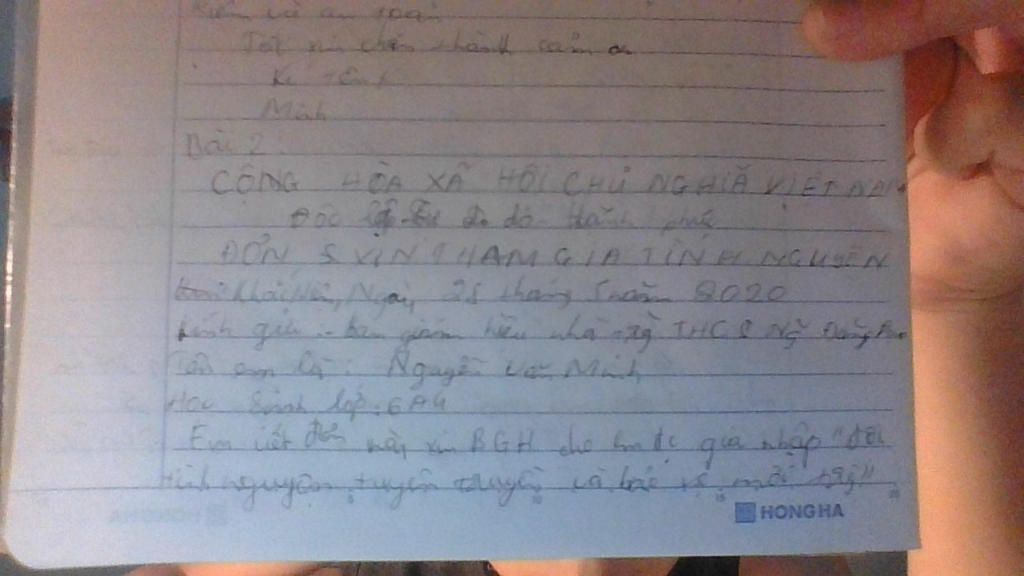 Kiểm và an toàn
Tôi xin chân thành cảm ơn
Kí tên
Minh
Bài 2:
CỘNG HÒA XÃ HỘI CHỦ NGHĨA VIỆT NAM
Độc lập tự do hạnh phúc
ĐƠN XIN THAM GIA TÌNH NGUYỆN
Ngày 25 tháng 5 năm 2020
Kính gửi: ban giám hiệu nhà THCS Đăng
Tên em là: Nguyễn Văn Minh
Học Sinh lớp: 6A4
Em viết đơn này xin BGH cho em đc gia nhập "đội
tình nguyện tuyên truyền và bảo vệ môi
HONG HA